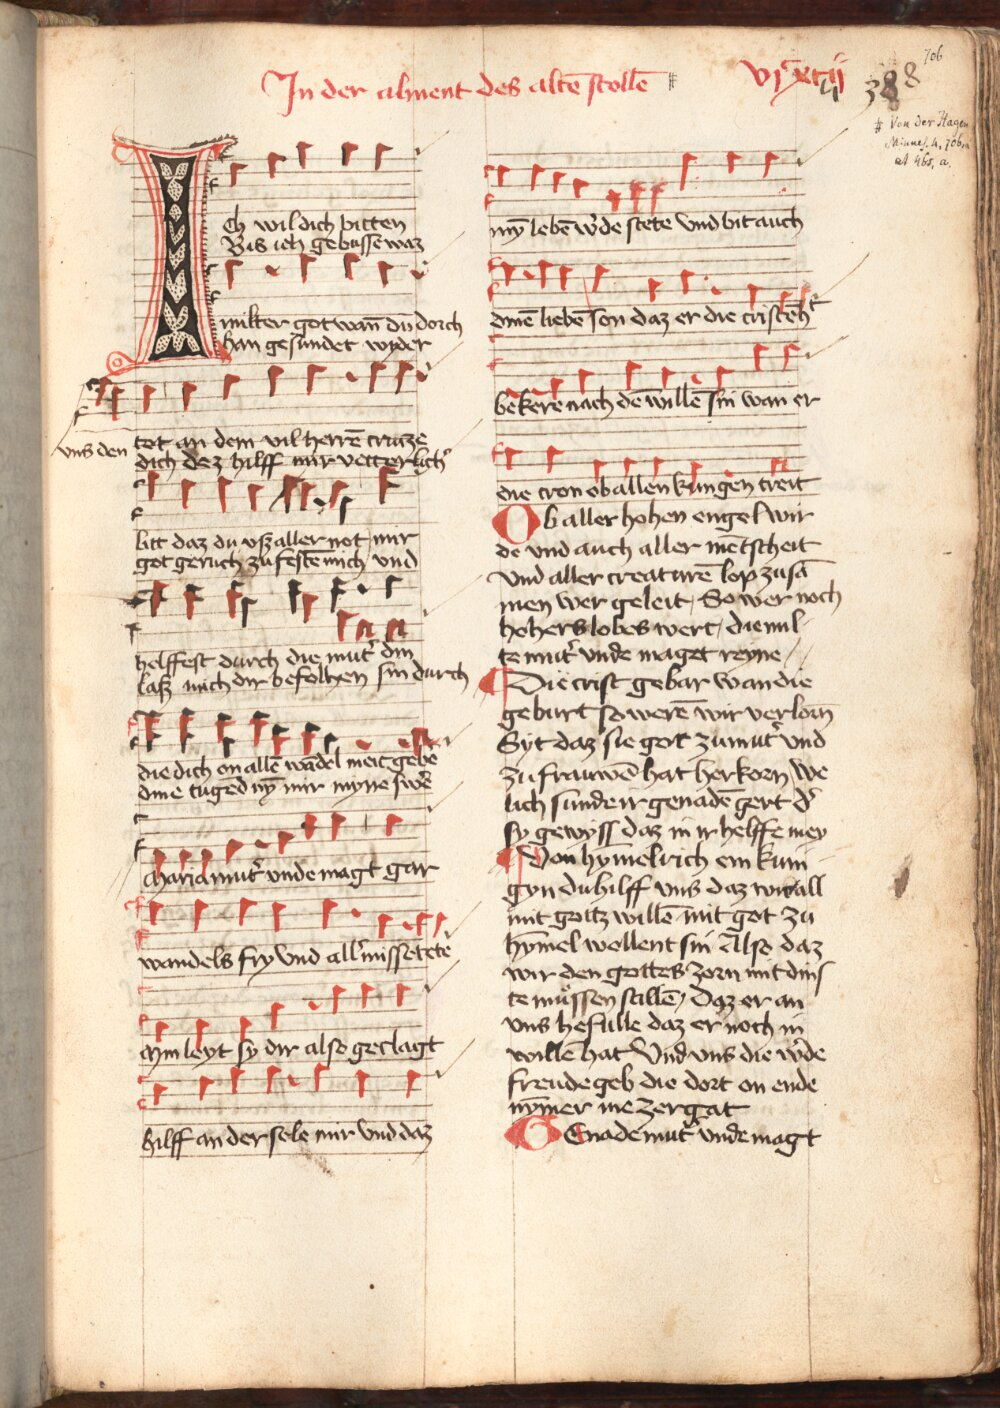 In der alment des altē stollē #
VIᶜxcii
388
706
# Von der Hagen
Minnes. 4, 706.
et 465, a.
Ich wil dich bitten
Bis ich gebusse waz
milter got wan du dorch
han gesundet wyder
vns den tot an dem vil herrē cruze
dich dez hilff mir vetterlich
bitt daz du vsz aller not mir
got geruch zu festē mich vnd
helffest durch die mut̓ din
lasz mich dir befolhen sin durch
die dich on allē wādel meit gebe
dine tugēd nȳ mir myne swe̓
Maria mut̓ vnde magt gar
wandels fry vnd all̓ missetete
Min leyt sy dir also geclagt
hilff an der sele mir vnd daz
mȳ lebē w̓de stete vnd bit auch
dinē liebē son daz er die cristēh̓t
bekere nach dē willē sin wan er
die cron ob allen kungen treit
Ob aller hohen engel wir
de vnd auch aller mētscheit
vnd aller creaturē lop zu sā
men wer geleit / So wer noch
hohers lobes wert / die mil
te mut̓ vnde maget reyne
Die crist gebar wan die
geburt so werē wir verlorn
Syt daz sie got zu mut̓ vnd
zu frauwē hat herkorn We
lich sunde ir genadē gert d̓
sy gewyss daz in ir helffe mey
Von hȳmelrich ein kuni
gyn du hilff vns daz wir all
mit gottz willē mit got zu
hȳmel wellent sin Also daz
wir den gottes zorn mit dins
te müssen stillē / Daz er an
vns hefulle daz er noch in
willē hat Vnd vns die w̓de
freude geb die dort on ende
nȳmer me zergat
Genade mut̓ vnde magt